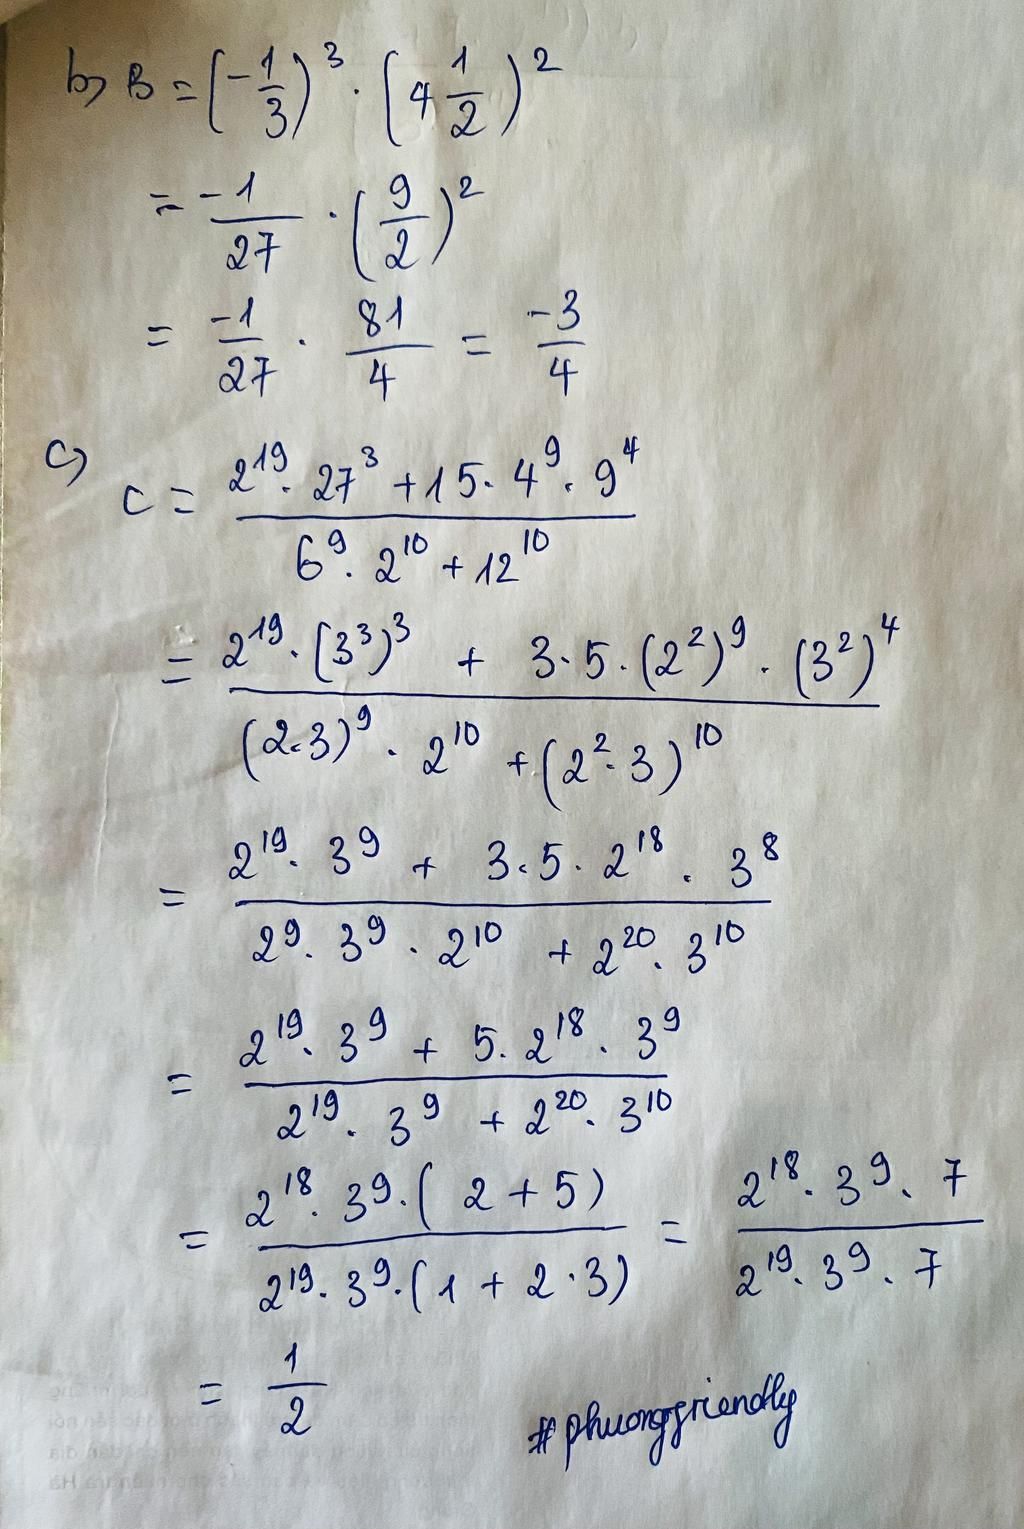 b) B = (-1/3)^3 . (4 1/2)^2
= -1/27 . (9/2)^2
= -1/27 . 81/4 = -3/4
c)
C = (2^19 . 27^3 + 15 . 4^9 . 9^4) / (6^9 . 2^10 + 12^10)
= (2^19 . (3^3)^3 + 3 . 5 . (2^2)^9 . (3^2)^4) / ((2.3)^9 . 2^10 + (2^2 . 3)^10)
= (2^19 . 3^9 + 3 . 5 . 2^18 . 3^8) / (2^9 . 3^9 . 2^10 + 2^20 . 3^10)
= (2^19 . 3^9 + 5 . 2^18 . 3^9) / (2^19 . 3^9 + 2^20 . 3^10)
= (2^18 . 3^9 . (2 + 5)) / (2^19 . 3^9 . (1 + 2 . 3)) = (2^18 . 3^9 . 7) / (2^19 . 3^9 . 7)
= 1/2